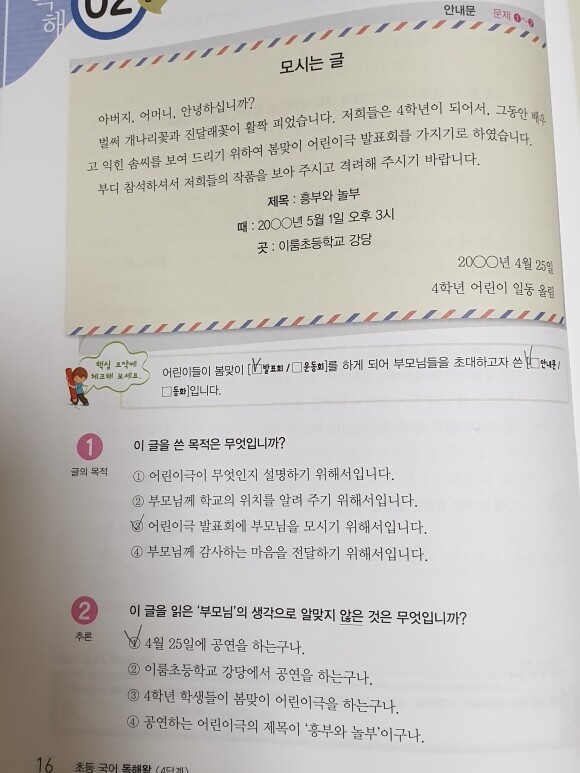 독해
02
안내문 문제 ❶~❷
모시는 글
아버지, 어머니, 안녕하십니까?
벌써 개나리꽃과 진달래꽃이 활짝 피었습니다. 저희들은 4학년이 되어서, 그동안 배우
고 익힌 솜씨를 보여 드리기 위하여 봄맞이 어린이극 발표회를 가지기로 하였습니다.
부디 참석하셔서 저희들의 작품을 보아 주시고 격려해 주시기 바랍니다.
제목 : 흥부와 놀부
때 : 20○○년 5월 1일 오후 3시
곳 : 이룸초등학교 강당
20○○년 4월 25일
4학년 어린이 일동 올림
핵심 요약에
체크해 보세요.
어린이들이 봄맞이 [☑발표회 / □운동회]를 하게 되어 부모님들을 초대하고자 쓴 [☑안내문 /
□동화]입니다.
1 이 글을 쓴 목적은 무엇입니까?
글의 목적
① 어린이극이 무엇인지 설명하기 위해서입니다.
② 부모님께 학교의 위치를 알려 주기 위해서입니다.
③ 어린이극 발표회에 부모님을 모시기 위해서입니다.
④ 부모님께 감사하는 마음을 전달하기 위해서입니다.
2 이 글을 읽은 '부모님'의 생각으로 알맞지 않은 것은 무엇입니까?
추론
① 4월 25일에 공연을 하는구나.
② 이룸초등학교 강당에서 공연을 하는구나.
③ 4학년 학생들이 봄맞이 어린이극을 하는구나.
④ 공연하는 어린이극의 제목이 '흥부와 놀부'이구나.
16 초등 국어 독해왕 〈4단계〉